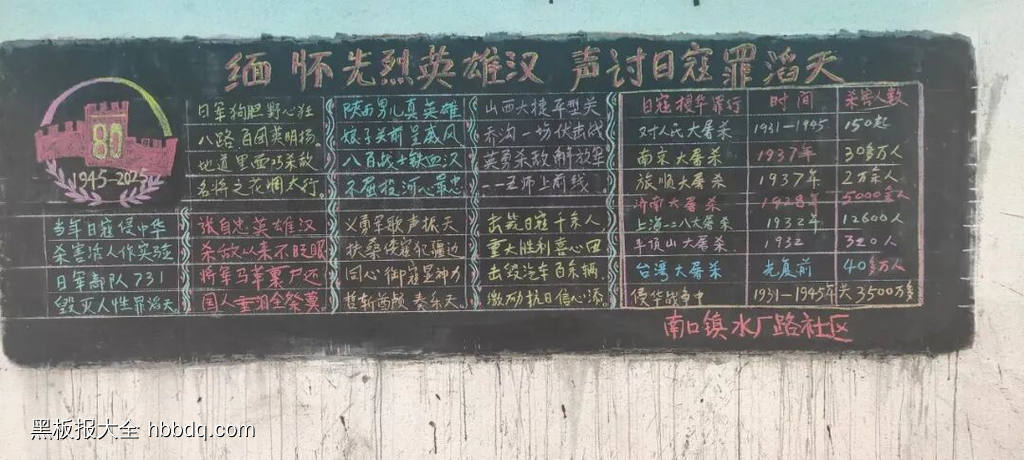 缅怀先烈英雄汉 声讨日寇罪滔天
80
1945-2025
日军狗胆野心狂
八路百团英明扬。
地道里面巧杀敌
名将之花凋太行。
陕西男儿真英雄
娘子关前呈威风
八百战士铁血汉
不屈投河心最忠
山西大捷平型关
乔沟一场伏击战
英勇杀敌解放军
一一五师上前线
当年日寇侵中华
杀害活人作实验
日军部队731
毁灭人性罪滔天
张自忠英雄汉
杀敌以来不眨眼
将军马革裹尸还
国人垂泪全祭奠
义勇军歌声振天
扶桑倭寇犯疆边
同心御寇显神力
奏乐天。
击毙日寇千余人
重大胜利喜心田
击毁汽车百余辆。
激励抗日信心添。
日寇侵华罪行 时间 杀害人数
对人民大屠杀 1931—1945 150起
南京大屠杀 1937年 30多万人
旅顺大屠杀 1937年 2万余人
济南大屠杀 1928年 5000多人
上海一二八大屠杀 1932年 12600人
平顶山大屠杀 1932 320人
台湾大屠杀 光复前 40多万人
侵华战争中 1931—1945年 3500万多
南口镇水厂路社区
黑板报大全 hbbdq.com